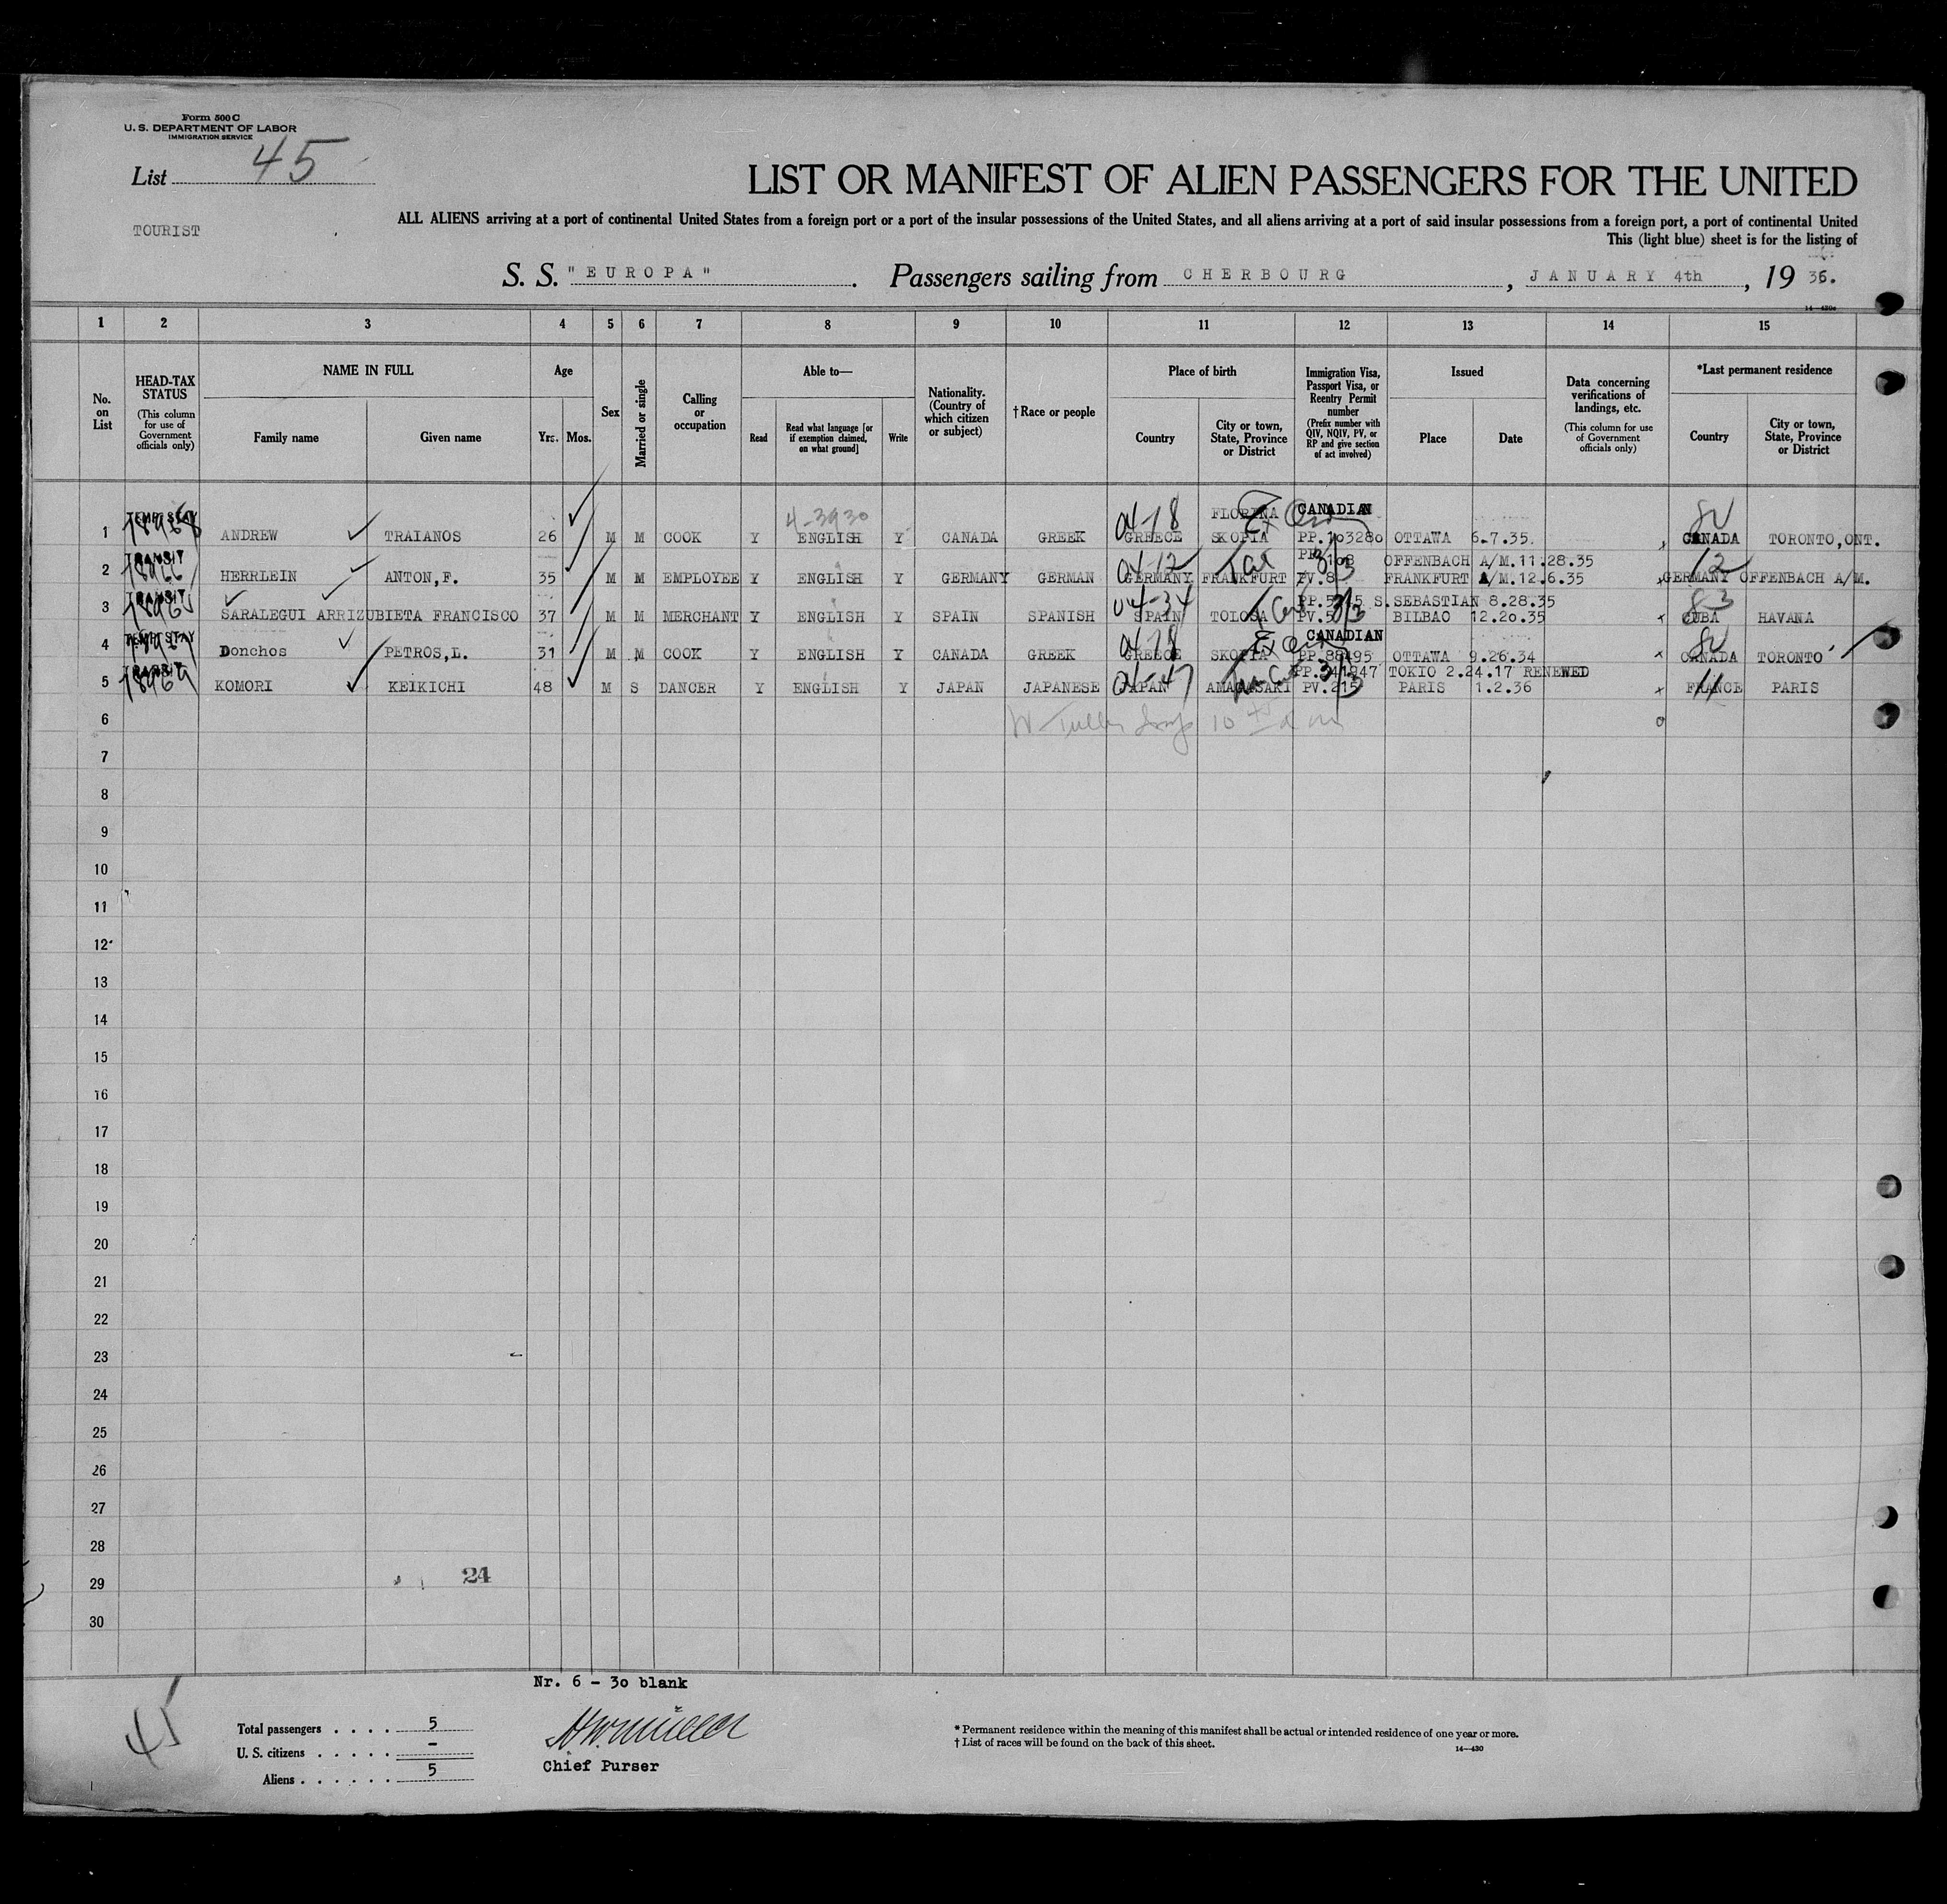 Form 500 C
U. S. DEPARTMENT OF LABOR
IMMIGRATION SERVICE
List 45
LIST OR MANIFEST OF ALIEN PASSENGERS FOR THE UNITED
ALL ALIENS arriving at a port of continental United States from a foreign port or a port of the insular possessions of the United States, and all aliens arriving at a port of said insular possessions from a foreign port, a port of continental United
TOURIST
This (light blue) sheet is for the listing of
S. S. "EUROPA". Passengers sailing from CHERBOURG, JANUARY 4th, 19 36.
14—430c
1 2 3 4 5 6 7 8 9 10 11 12 13 14 15
No. on List
HEAD-TAX STATUS (This column for use of Government officials only)
NAME IN FULL
Family name
Given name
Age
Yrs. Mos.
Sex
Married or single
Calling or occupation
Able to—
Read
Read what language [or if exemption claimed, on what ground]
Write
Nationality. (Country of which citizen or subject)
† Race or people
Place of birth
Country
City or town, State, Province or District
Immigration Visa, Passport Visa, or Reentry Permit number (Prefix number with QIV, NQIV, PV, or RP and give section of act involved)
Issued
Place
Date
Data concerning verifications of landings, etc. (This column for use of Government officials only)
*Last permanent residence
Country
City or town, State, Province or District
TEMP. STAY 4-3930 04-18 FLORINA CANADIAN
1 ANDREW TRAIANOS 26 M M COOK Y ENGLISH Y CANADA GREEK GREECE SKOPIA PP.103280 OTTAWA 6.7.35. CANADA TORONTO,ONT.
TRANSIT 04-12 OFFENBACH A/M.11.28.35 12
2 HERRLEIN ANTON,F. 35 M M EMPLOYEE Y ENGLISH Y GERMANY GERMAN GERMANY FRANKFURT PV.8 FRANKFURT A/M.12.6.35 GERMANY OFFENBACH A/M.
TRANSIT 04-34 S.SEBASTIAN 8.28.35 83
3 SARALEGUI ARRIZUBIETA FRANCISCO 37 M M MERCHANT Y ENGLISH Y SPAIN SPANISH SPAIN TOLOSA PV.5 BILBAO 12.20.35 CUBA HAVANA
TEMP. STAY 04-18 CANADIAN
4 Donchos PETROS,L. 31 M M COOK Y ENGLISH Y CANADA GREEK GREECE SKOPIA PP.88495 OTTAWA 9.26.34 CANADA TORONTO
TRANSIT 04-47 TOKIO 2.24.17 RENEWED
5 KOMORI KEIKICHI 48 M S DANCER Y ENGLISH Y JAPAN JAPANESE JAPAN AMAGASAKI PV.215 PARIS 1.2.36 FRANCE PARIS
6
7
8
9
10
11
12
13
14
15
16
17
18
19
20
21
22
23
24
25
26
27
28
29 24
30
Nr. 6 - 30 blank
45
Total passengers . . . . 5
U. S. citizens . . . . . -
Aliens . . . . . . 5
Chief Purser
* Permanent residence within the meaning of this manifest shall be actual or intended residence of one year or more.
† List of races will be found on the back of this sheet.
14—430